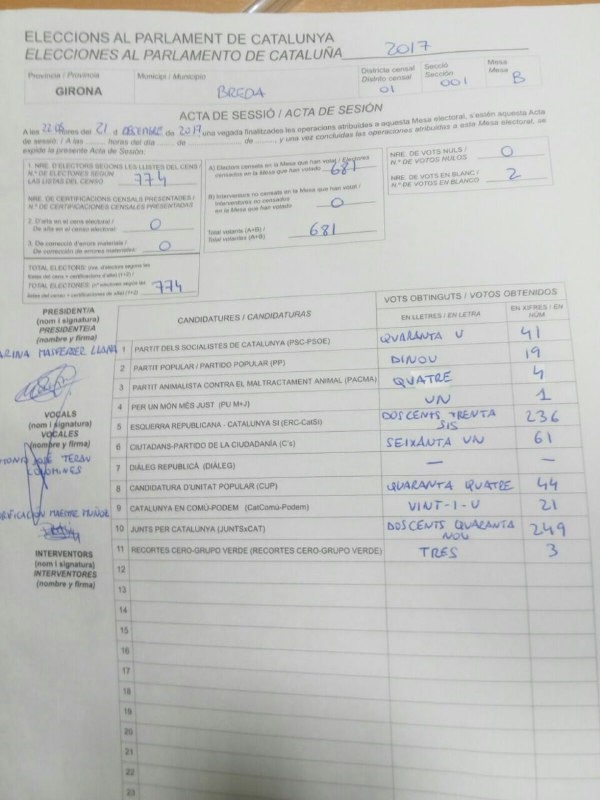 ELECCIONS AL PARLAMENT DE CATALUNYA
ELECCIONES AL PARLAMENTO DE CATALUÑA 2017
Província / Provincia
GIRONA
Municipi / Municipio
BREDA
Districte censal
Distrito censal
01
Secció
Sección
001
Mesa
Mesa
B
ACTA DE SESSIÓ / ACTA DE SESIÓN
A les 22:08 hores del 21 d DESEMBRE de 2017 una vegada finalitzades les operacions atribuïdes a aquesta Mesa electoral, s'estén aquesta Acta
de sessió. / A las ........ horas del día ........ de ........ de ........, y una vez concluidas las operaciones atribuidas a esta Mesa electoral, se
expide la presente Acta de Sesión.
1. NRE. D'ELECTORS SEGONS LES LLISTES DEL CENS /
N.º DE ELECTORES SEGÚN
LAS LISTAS DEL CENSO 774
NRE. DE CERTIFICACIONS CENSALS PRESENTADES /
N.º DE CERTIFICACIONES CENSALES PRESENTADAS
2. D'alta en el cens electoral /
De alta en el censo electoral: 0
3. De correcció d'errors materials /
De corrección de errores materiales: 0
TOTAL ELECTORS: (nre. d'electors segons les
llistes del cens + certificacions d'alta) (1+2) /
TOTAL ELECTORES: (n.º electores según las
listas del censo + certificaciones de alta) (1+2) 774
A) Electors censats en la Mesa que han votat / Electores
censados en la Mesa que han votado 681
B) Interventors no censats en la Mesa que han votat /
Interventores no censados
en la Mesa que han votado 0
Total votants (A+B) /
Total votantes (A+B) 681
NRE. DE VOTS NULS /
N.º DE VOTOS NULOS 0
NRE. DE VOTS EN BLANC /
N.º DE VOTOS EN BLANCO 2
PRESIDENT/A
(nom i signatura)
PRESIDENTE/A
(nombre y firma)
MASFERRER
VOCALS
(nom i signatura)
VOCALES
(nombre y firma)
JOSÉ TERAN
COLOMINES
MAESTRE MUÑOZ
INTERVENTORS
(nom i signatura)
INTERVENTORES
(nombre y firma)
CANDIDATURES / CANDIDATURAS
VOTS OBTINGUTS / VOTOS OBTENIDOS
EN LLETRES / EN LETRA
EN XIFRES / EN NÚM
1 PARTIT DELS SOCIALISTES DE CATALUNYA (PSC-PSOE) QUARANTA U 41
2 PARTIT POPULAR / PARTIDO POPULAR (PP) DINOU 19
3 PARTIT ANIMALISTA CONTRA EL MALTRACTAMENT ANIMAL (PACMA) QUATRE 4
4 PER UN MÓN MÉS JUST (PU M+J) UN 1
5 ESQUERRA REPUBLICANA - CATALUNYA SÍ (ERC-CatSí) DOSCENTS TRENTA SIS 236
6 CIUTADANS-PARTIDO DE LA CIUDADANÍA (C's) SEIXANTA UN 61
7 DIÀLEG REPUBLICÀ (DIÀLEG) — —
8 CANDIDATURA D'UNITAT POPULAR (CUP) QUARANTA QUATRE 44
9 CATALUNYA EN COMÚ-PODEM (CatComú-Podem) VINT-I-U 21
10 JUNTS PER CATALUNYA (JUNTSxCAT) DOSCENTS QUARANTA NOU 249
11 RECORTES CERO-GRUPO VERDE (RECORTES CERO-GRUPO VERDE) TRES 3
12
13
14
15
16
17
18
19
20
21
22
23